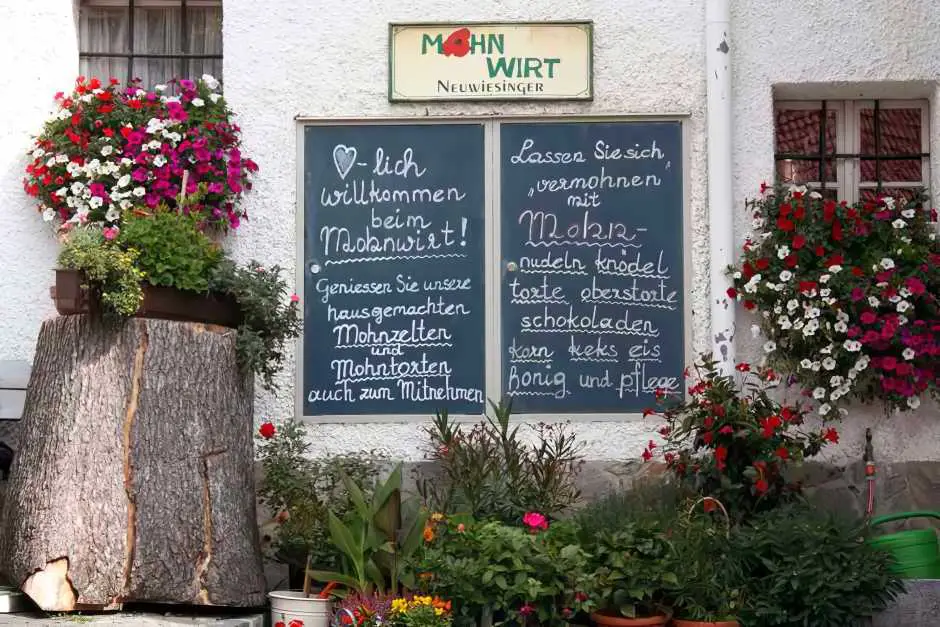 MOHN
WIRT
NEUWIESINGER
♡-lich
willkommen
beim
Mohnwirt!
Geniessen Sie unsere
hausgemachten
Mohnzelten
und
Mohntorten
auch zum Mitnehmen
Lassen Sie sich
"vermohnen
mit
Mohn-
nudeln knödel
torte oberstorte
schokoladen
korn keks eis
honig und pflege